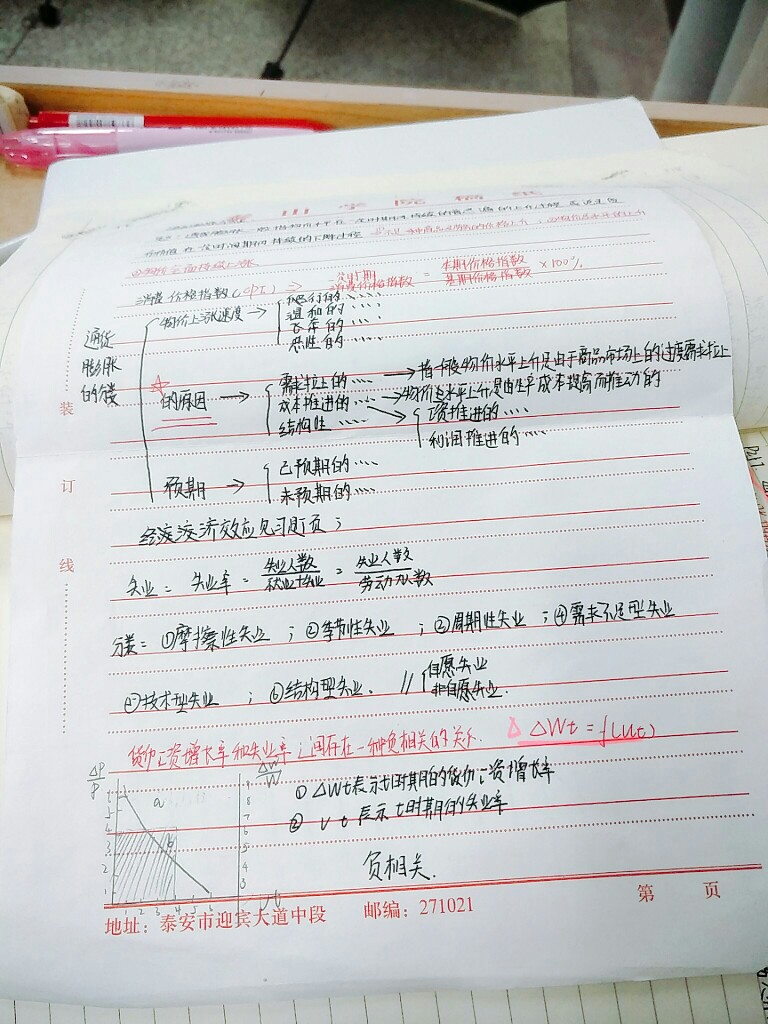 山学院稿纸
价值在一定时间期间持续的下降过程
①物价全面持续上涨
消费价格指数(CPI) ⇒ 一定时期消费价格指数 = 本期价格指数/基期价格指数 ×100%
通货膨胀的分类
物价上涨速度 → 爬行的····
温和的····
飞奔的····
恶性的····
☆的原因 → 需求拉上的···· → 指一般物价水平上升是由于商品市场上的过度需求拉上
成本推进的···· → 物价水平上升是由生产成本提高而推动的
工资推进的····
结构性····
利润推进的····
预期 → 已预期的····
未预期的····
装
订
线
经济效应见习题页;
失业 = 失业率 = 失业人数/就业+失业 = 失业人数/劳动力人数
分类= ①摩擦性失业 ; ②季节性失业 ; ③周期性失业 ; ④需求不足型失业
⑤技术型失业 ; ⑥结构型失业. // 自愿失业
非自愿失业.
货币工资增长率和失业率之间存在一种负相关的关系. △ ΔWt = f(Ut)
ΔP/P
ΔW/W
a
b
① ΔWt表示t时期的货币工资增长率
② Ut 表示t时期的失业率
负相关.
第 页
地址：泰安市迎宾大道中段 邮编：271021